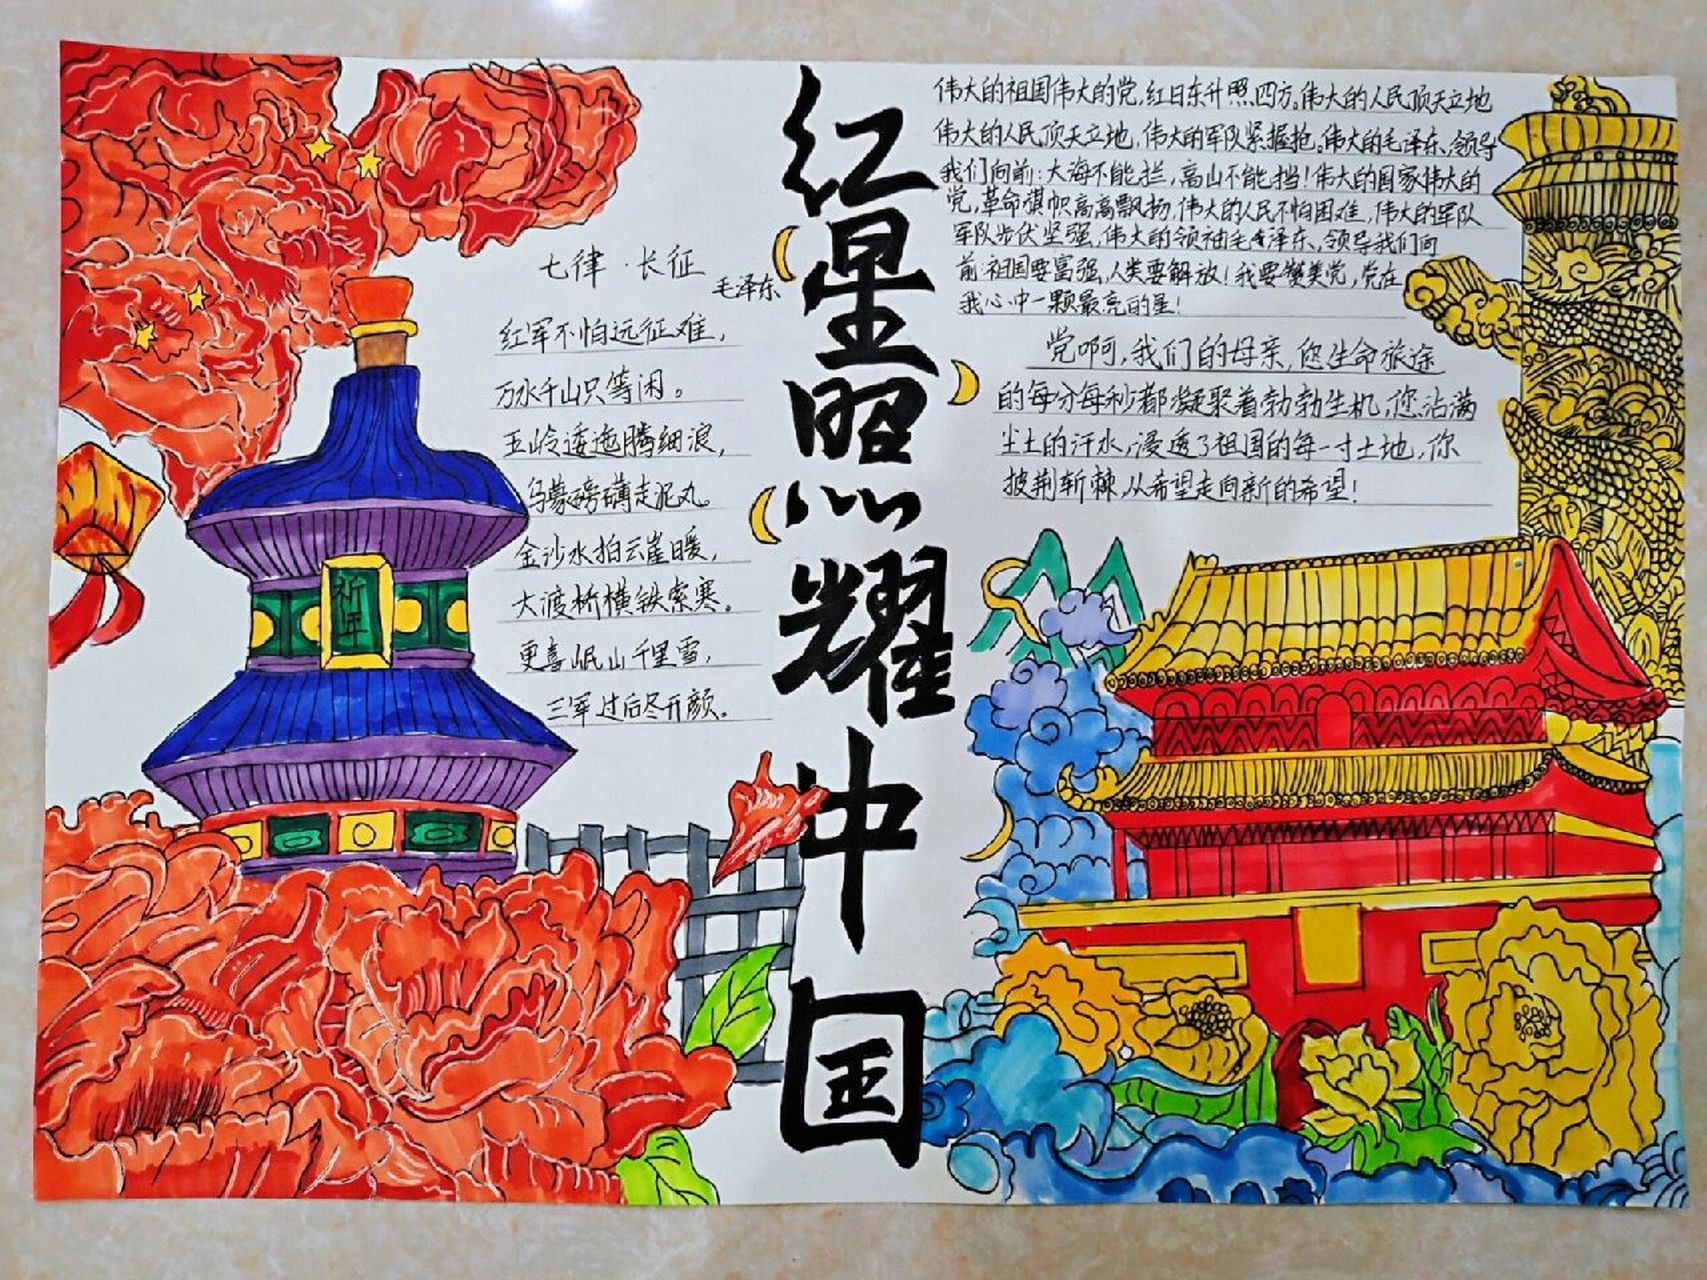 红星照耀中国
七律·长征
毛泽东
红军不怕远征难，
万水千山只等闲。
五岭逶迤腾细浪，
乌蒙磅礴走泥丸。
金沙水拍云崖暖，
大渡桥横铁索寒。
更喜岷山千里雪，
三军过后尽开颜。
祈年
伟大的祖国伟大的党，红日东升照四方。伟大的人民顶天立地
伟大的人民顶天立地，伟大的军队紧握抢。伟大的毛泽东，领导
我们向前：大海不能拦，高山不能挡！伟大的国家伟大的
党，革命旗帜高高飘扬，伟大的人民不怕困难，伟大的军队
军队步伏坚强，伟大的领袖毛泽东，领导我们向
前：祖国要富强，人类要解放！我要赞美党，党在
我心中一颗最亮的星！
党啊，我们的母亲，您生命旅途
的每分每秒都凝聚着勃勃生机，您沾满
尘土的汗水，浸透了祖国的每一寸土地，你
披荆斩棘，从希望走向新的希望！